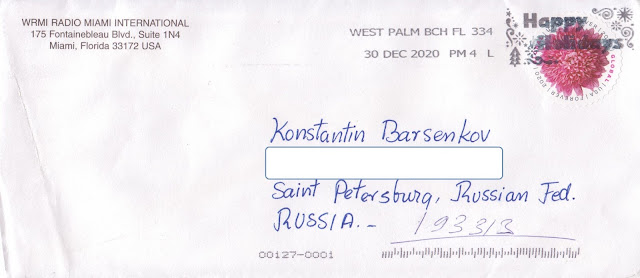 WRMI RADIO MIAMI INTERNATIONAL
175 Fontainebleau Blvd., Suite 1N4
Miami, Florida 33172 USA
WEST PALM BCH FL 334
30 DEC 2020 PM 4 L
Happy
Holidays
GLOBAL | USA | FOREVER | 2020
Konstantin Barsenkov
Saint Petersburg, Russian Fed.
RUSSIA.-
193313
00127-0001